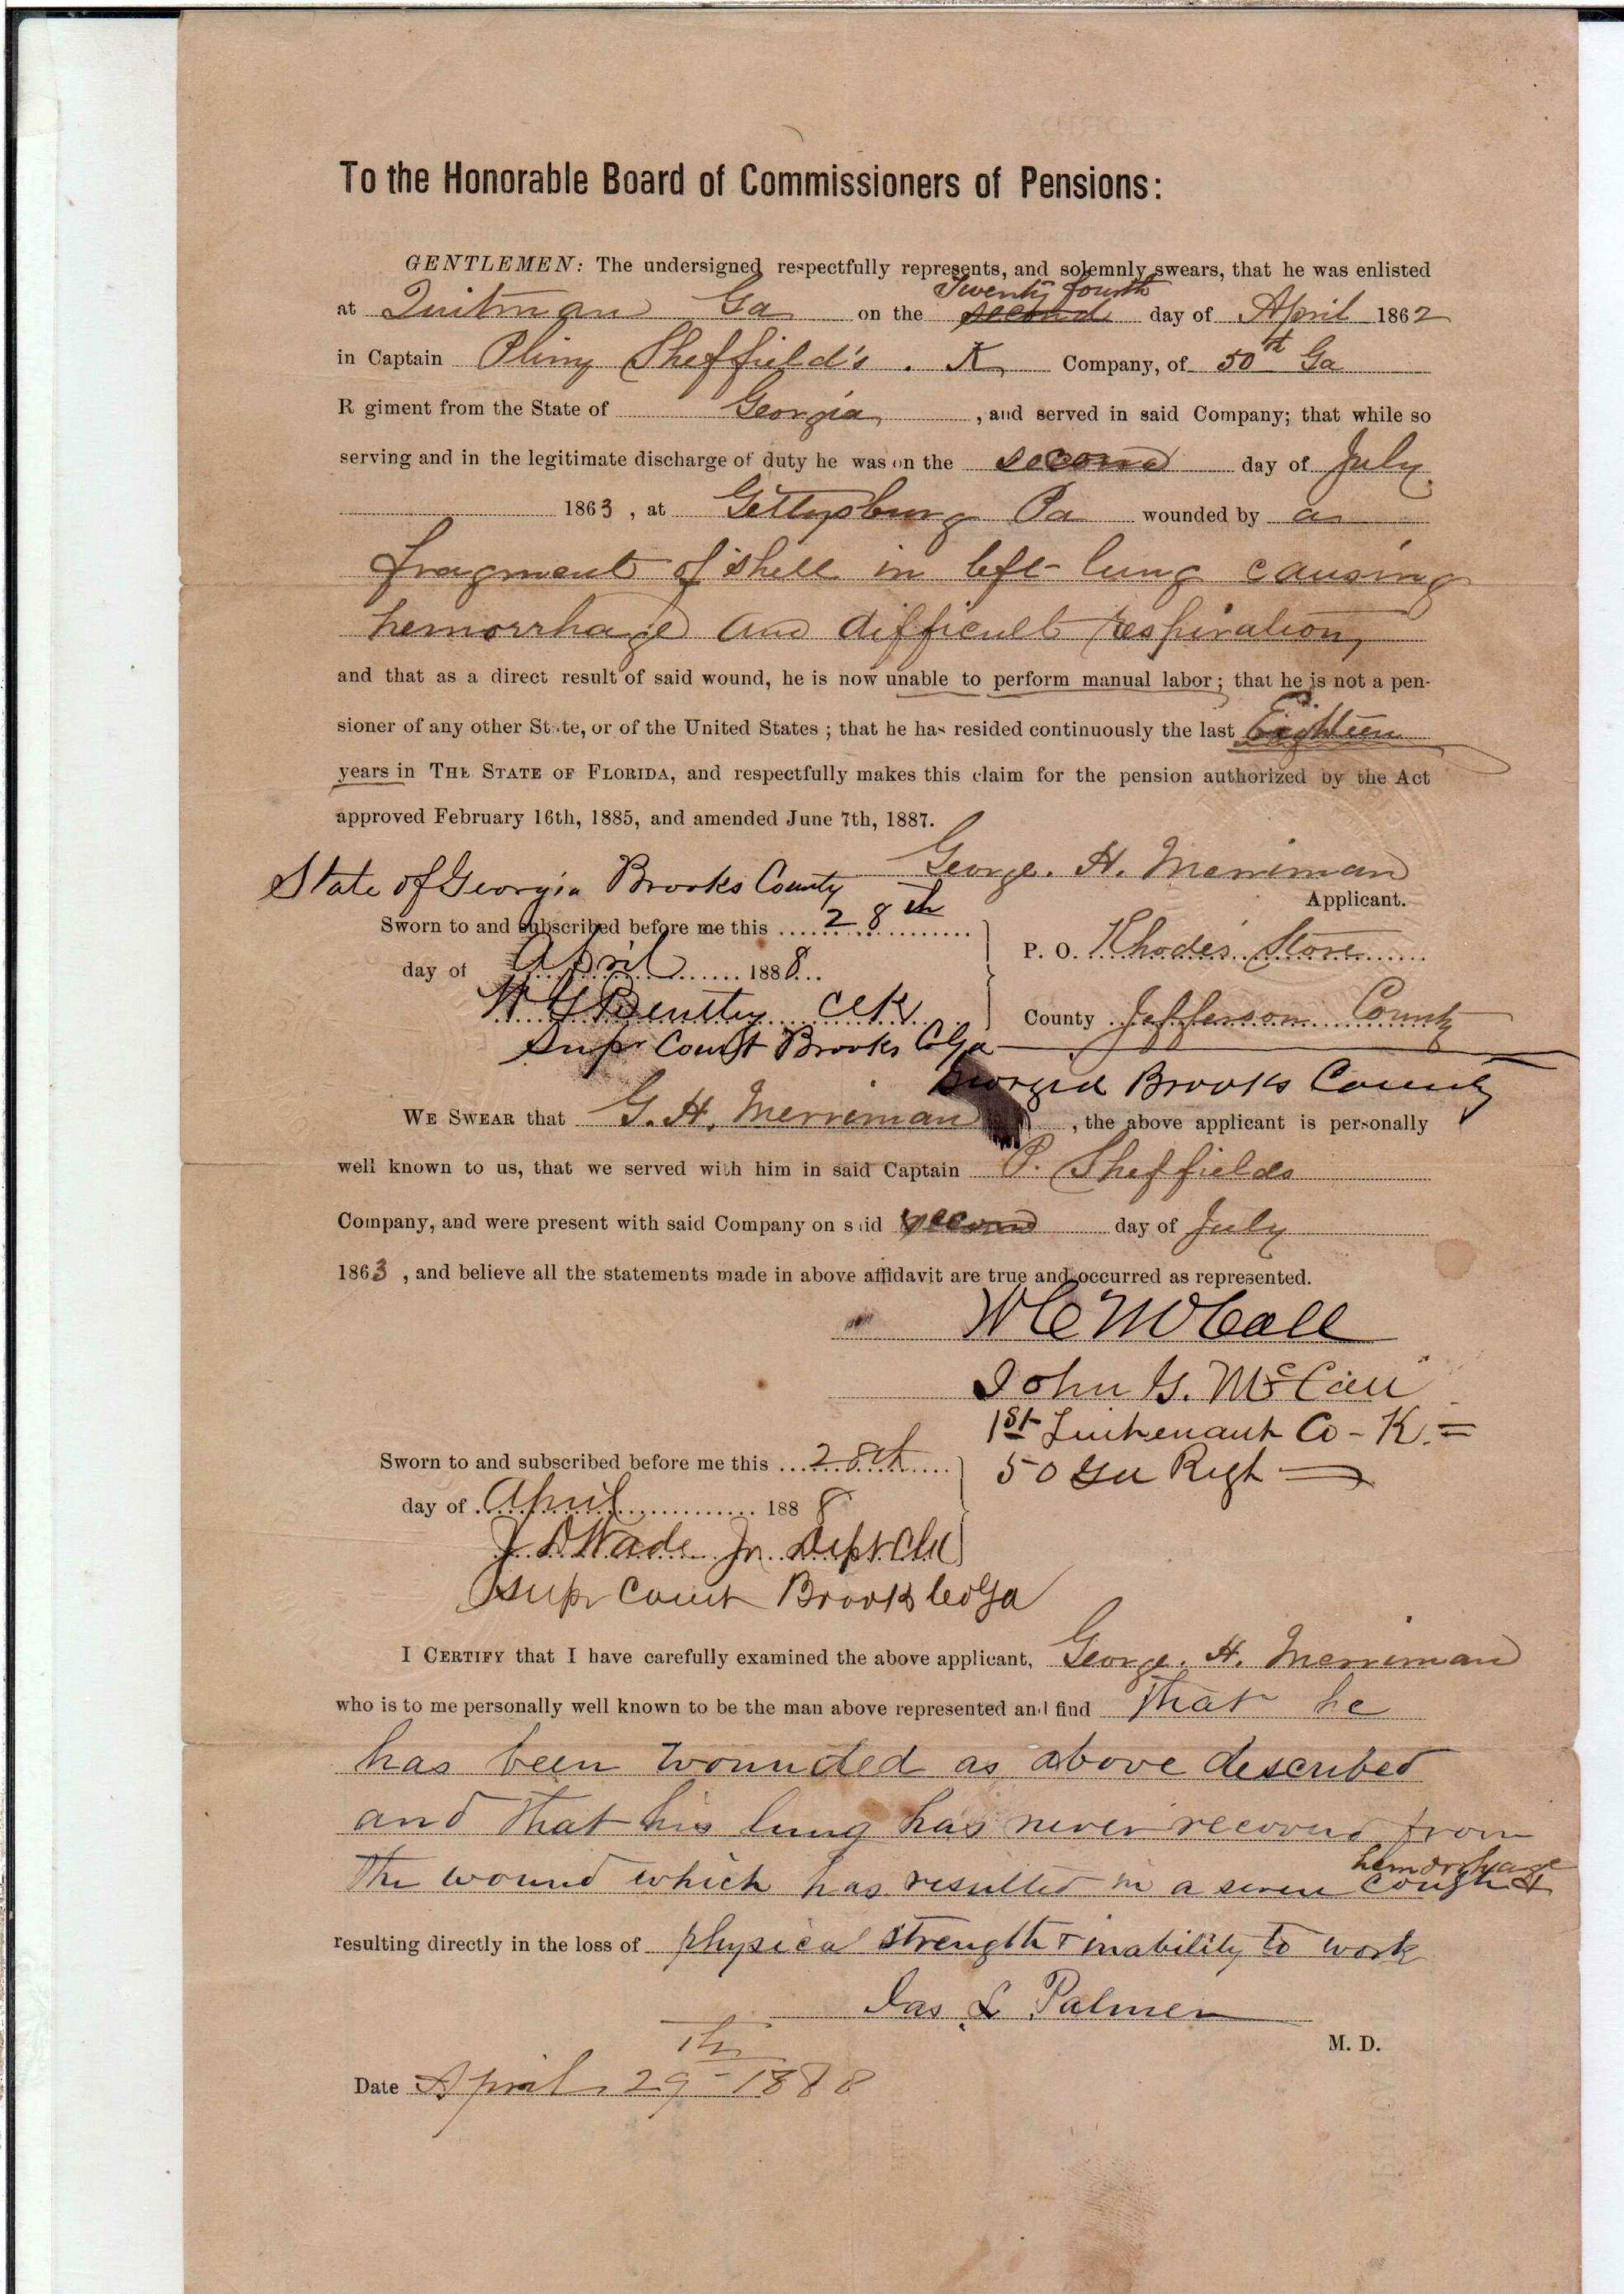 To the Honorable Board of Commissioners of Pensions:
GENTLEMEN: The undersigned respectfully represents, and solemnly swears, that he was enlisted
Twenty fourth
at Quitman Ga on the second day of April 1862
in Captain Pliny Sheffield's. K Company, of 50th Ga
R giment from the State of Georgia, and served in said Company; that while so
serving and in the legitimate discharge of duty he was on the second day of July
1863, at Gettysburg Pa wounded by a
fragment of shell in left lung causing
hemorrhage and difficult respiration,
and that as a direct result of said wound, he is now unable to perform manual labor; that he is not a pen-
sioner of any other State, or of the United States; that he has resided continuously the last Eighteen
years in THE STATE OF FLORIDA, and respectfully makes this claim for the pension authorized by the Act
approved February 16th, 1885, and amended June 7th, 1887.
George. H. Merriman
Applicant.
State of Georgia Brooks County
Sworn to and subscribed before me this 28th
day of April 1888
Bentley Clk
Supr Court Brooks Co Ga
P. O. Rhodes Store
County Jefferson County
Georgia Brooks County
WE SWEAR that G. H. Merriman, the above applicant is personally
well known to us, that we served with him in said Captain P. Sheffields
Company, and were present with said Company on said second day of July
1863, and believe all the statements made in above affidavit are true and occurred as represented.
W C McCall
John G. McCall
1st Lieutenant Co - K. =
50 Ga Regt
Sworn to and subscribed before me this 28th
day of April 1888
J. D Wade Jr. Dept Clk
Supr Court Brooks Co Ga
I CERTIFY that I have carefully examined the above applicant, George. H. Merriman
who is to me personally well known to be the man above represented and find that he
has been wounded as above described
and that his lung has never recoverd from
hemorrhage
the wound which has resulted in a severe cough &
resulting directly in the loss of physical strength & inability to work
Jas L Palmer
M. D.
Date April 29th 1888